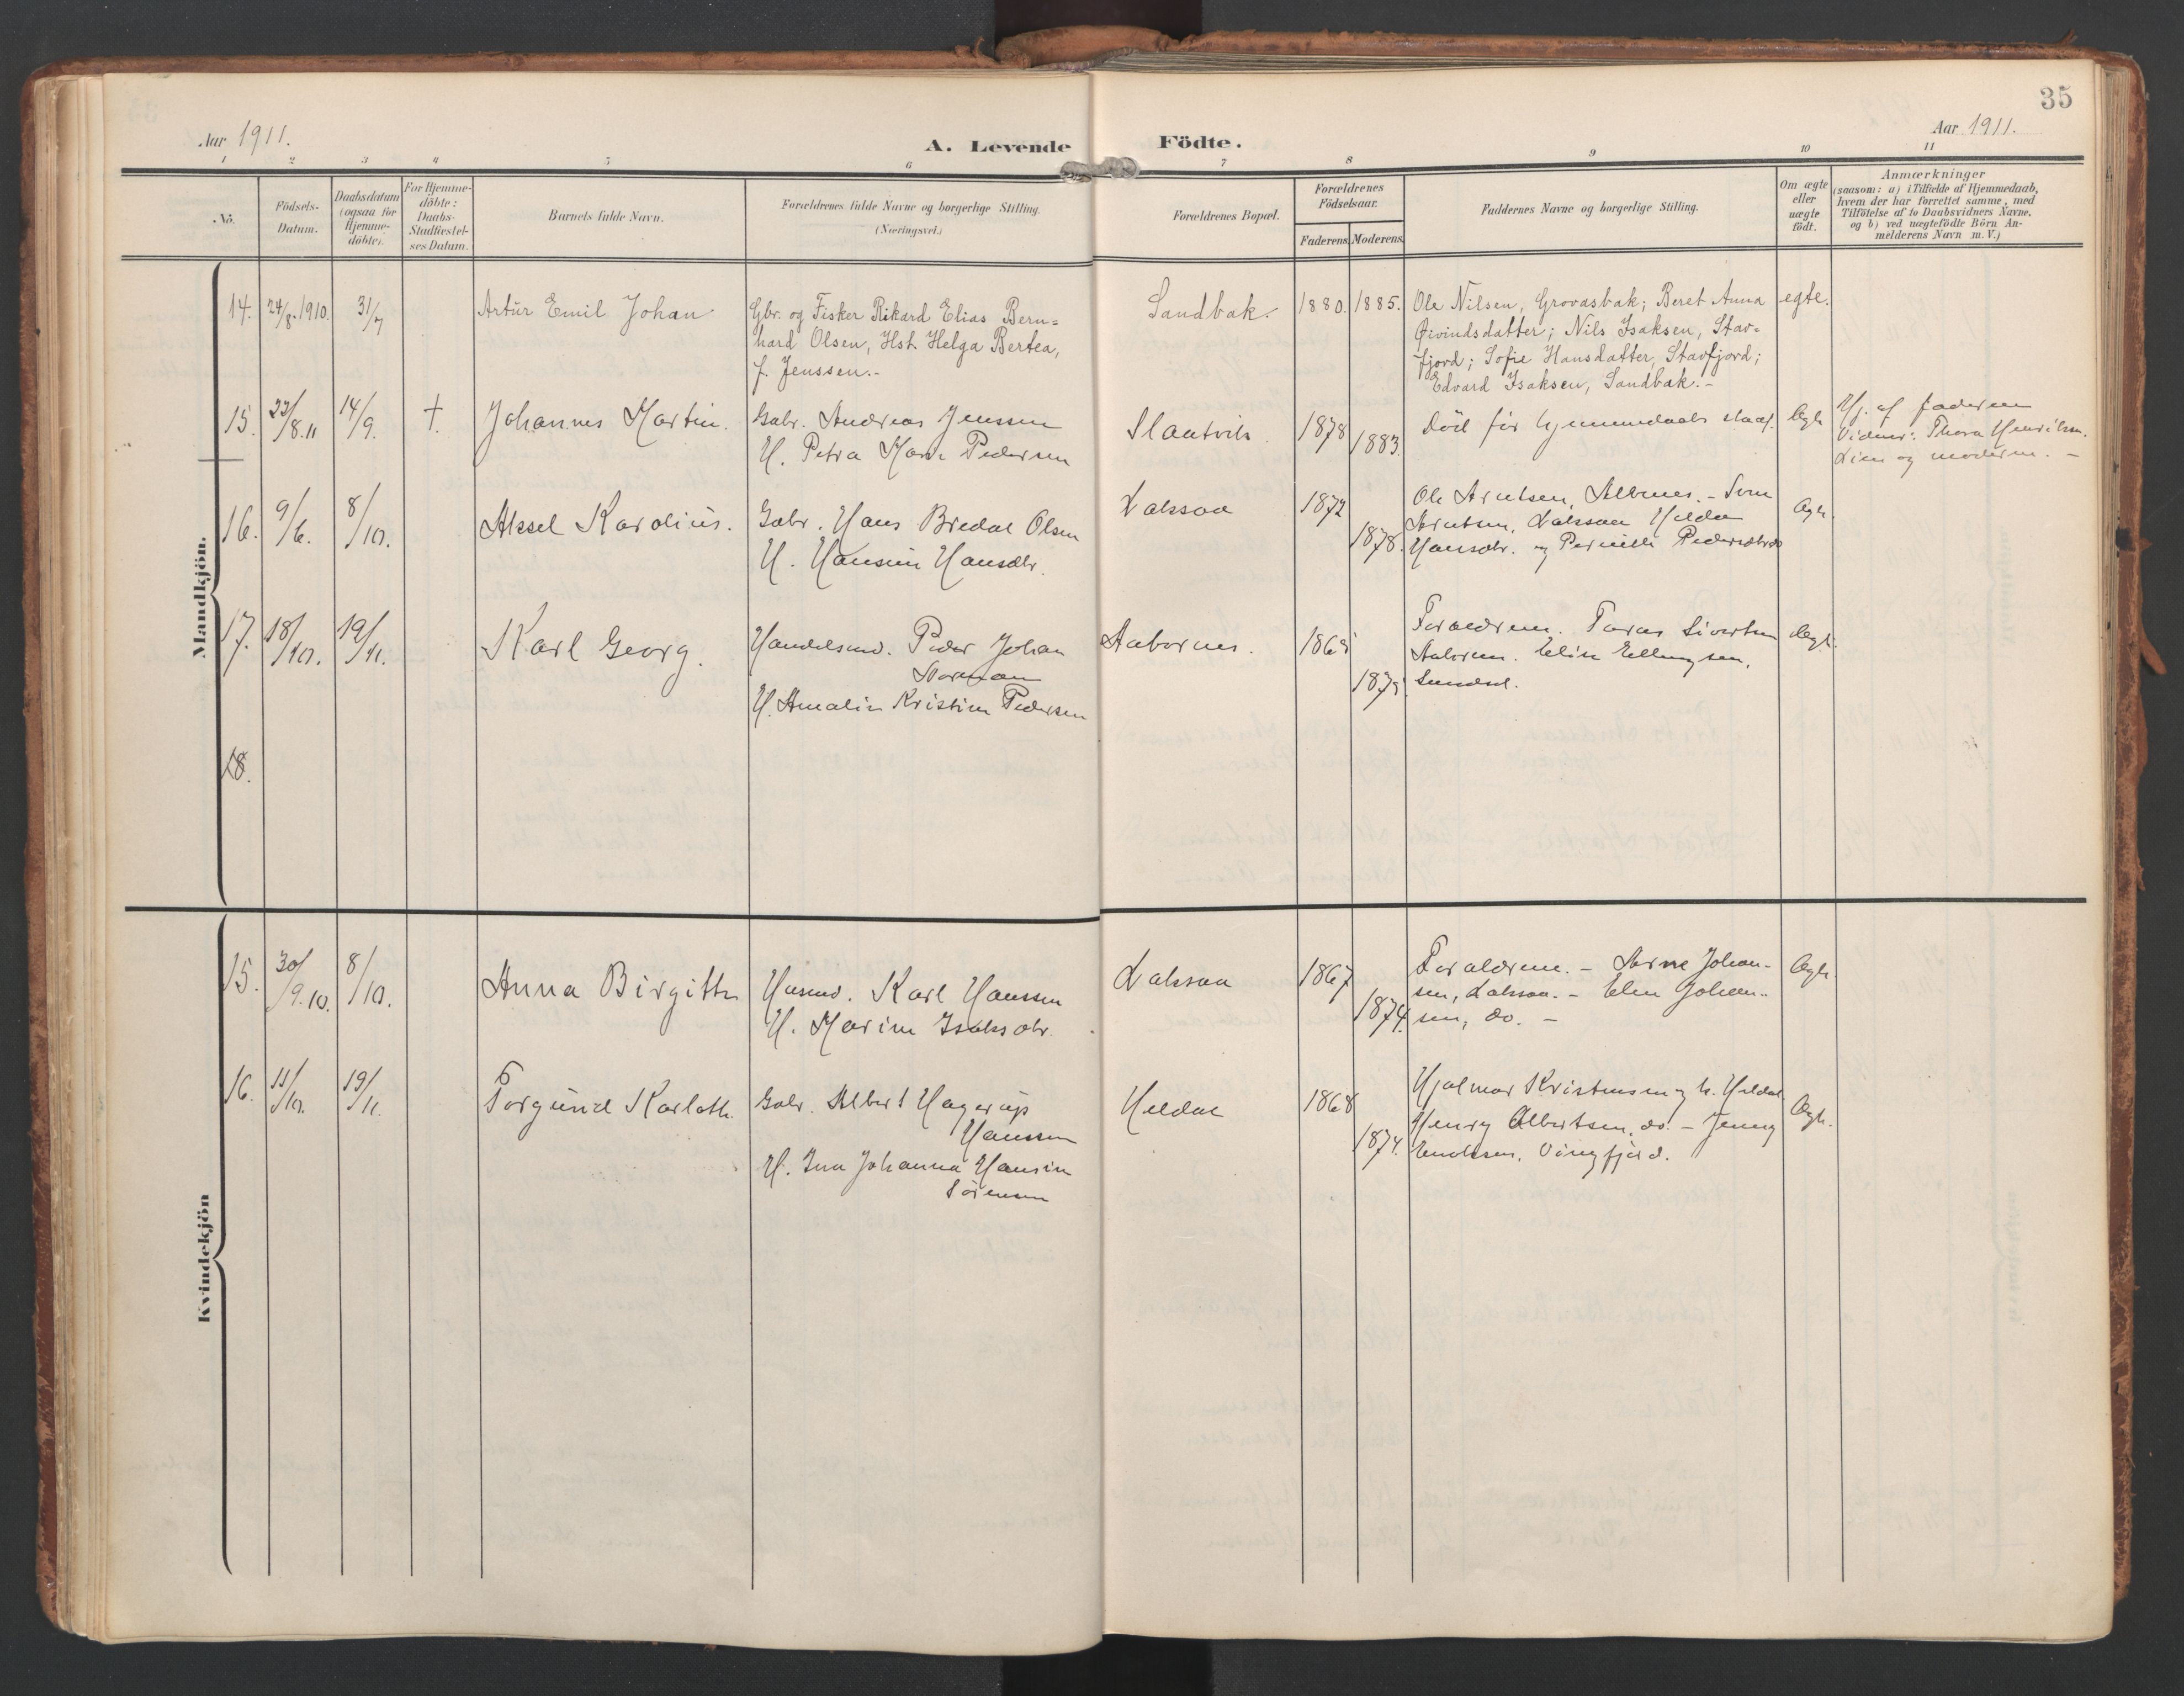 35
Aar 1911.
A. Levende Födte.
Aar 1911.
1 2 3 4 5 6 7 8 9 10 11
No.
Födsels-
Datum.
Daabsdatum
(ogsaa for
Hjemme-
döbte).
For Hjemme-
döbte:
Daabs-
Stadfæstel-
ses Datum.
Barnets fulde Navn.
Forældrenes fulde Navne og borgerlige Stilling.
(Næringsvei.)
Forældrenes Bopæl.
Forældrenes
Födselsaar.
Faderens. Moderens.
Faddernes Navne og borgerlige Stilling.
Om ægte
eller
uægte
födt.
Anmærkninger
(saasom: a) i Tilfælde af Hjemmedaab,
hvem der har forrettet samme, med
Tilföielse af to Daabsvidners Navne,
og b) ved uægtefödte Börn An-
melderens Navn m. V.)
Mandkjön.
14. 24/8. 1910. 31/7 Artur Emil Johan
Gbr. og Fisker Rikard Elias Bern=
hard Olsen, Hst. Helga Bertea,
f. Jenssen.-
Sandbak. 1880. 1885.
Ole Nilsen, Grovasbak; Beret Anna
Øivindsdatter; Nils Isaksen, Stav=
fjord; Sofie Hansdatter, Stavfjord;
Edvard Isaksen, Sandbak.-
egte.
15. 23/8.11 14/9. † Johannes Martin.
Gabr. Andreas Jenssen
H. Petra Marie Pedersen
Slaatvik. 1878 1883.
Död för hjemmedaabs stadf.
Ægte
Hj. af faderen
Vidner: Thora Henriksen.
Lien og moderen. -
16. 9/6. 8/10. Aksel Karolius.
Gabr. Hans Bredal Olsen
H. Hansine Hansdtr.
Laksaa 1872 1878.
Ole Arntsen,
Arntsen, Laksaa
Hansdtr. og Pernille Pedersdtr. do
Ægte.
17. 18/10. 19/11. Karl Georg.
Handelsmd. Peder Johan
Norman
H. Amalie Kristine Pedersen
Aabornes. 1869 1879
Forældrene. Sivertsen
Elise Ellingsen,
Ægte.
18.
Kvindekjön
15. 30/9.10. 8/10. Anna Birgitte
Husmd. Karl Hanssen
H. Marine Isaksdtr.
Laksaa 1867 1874.
Forældrene. - Arne Johan-
sen, Laksaa. - Elen Johan-
sen, do. -
Ægte.
16. 11/10. 19/11. Torgund Karlotte.
Gabr. Albert Hagerup
Hanssen
H. Ina Johanna Hansine
Sörensen
Heldal 1868 1874.
Hjalmar Kristensen og h. Heldal
Henry Albertsen, do. - Jenny
Enoksen, Vingfjord.
Ægte.